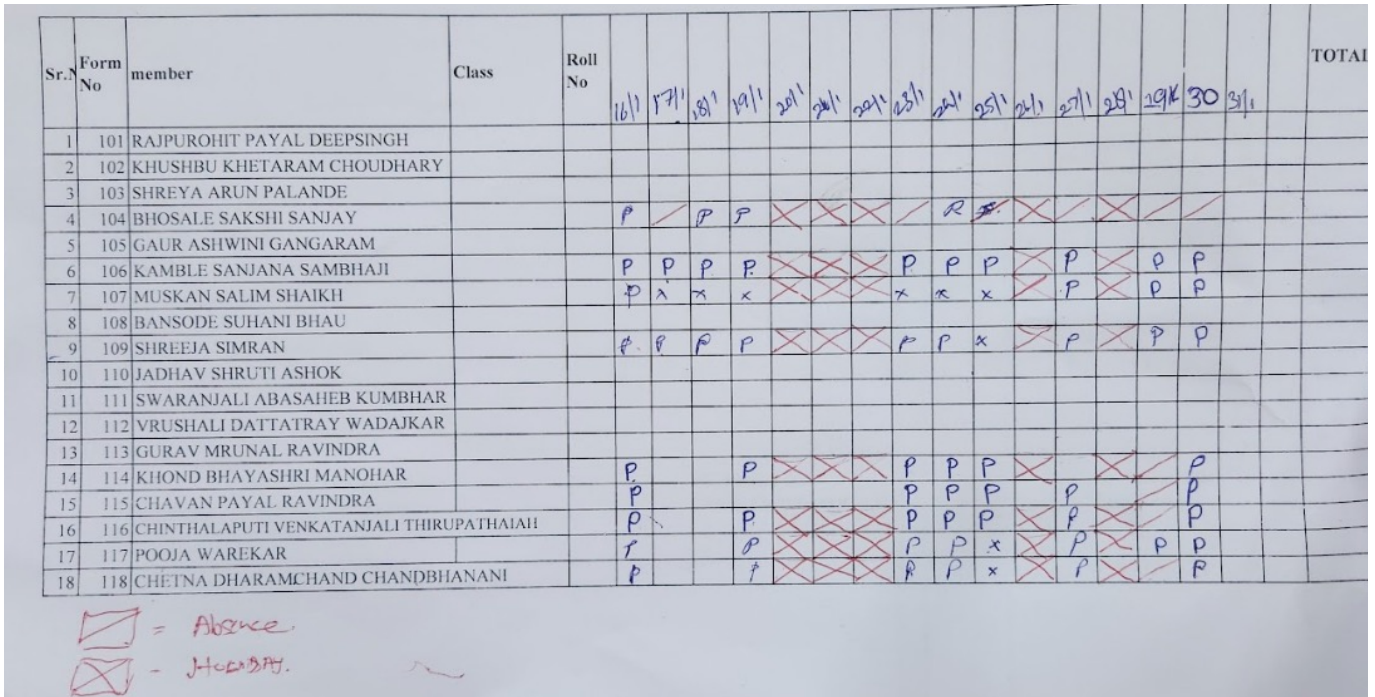 Sr.N Form No member Class Roll No 16/1 17/1 18/1 19/1 20/1 21/1 22/1 23/1 24/1 25/1 26/1 27/1 28/1 29/1 30 31/1 TOTAL
1 101 RAJPUROHIT PAYAL DEEPSINGH
2 102 KHUSHBU KHETARAM CHOUDHARY
3 103 SHREYA ARUN PALANDE
4 104 BHOSALE SAKSHI SANJAY P P P
5 105 GAUR ASHWINI GANGARAM
6 106 KAMBLE SANJANA SAMBHAJI P P P P. P P P P P P
7 107 MUSKAN SALIM SHAIKH P x x x x x x P P P
8 108 BANSODE SUHANI BHAU
9 109 SHREEJA SIMRAN P P P P P P x P P P
10 110 JADHAV SHRUTI ASHOK
11 111 SWARANJALI ABASAHEB KUMBHAR
12 112 VRUSHALI DATTATRAY WADAJKAR
13 113 GURAV MRUNAL RAVINDRA
14 114 KHOND BHAYASHRI MANOHAR P P P P P P
15 115 CHAVAN PAYAL RAVINDRA P P P P P P
16 116 CHINTHALAPUTI VENKATANJALI THIRUPATHAIAH P P P P P P P
17 117 POOJA WAREKAR P P P P x P P P
18 118 CHETNA DHARAMCHAND CHANDBHANANI P P P P x P P
= Absence.
- HOLIDAY.